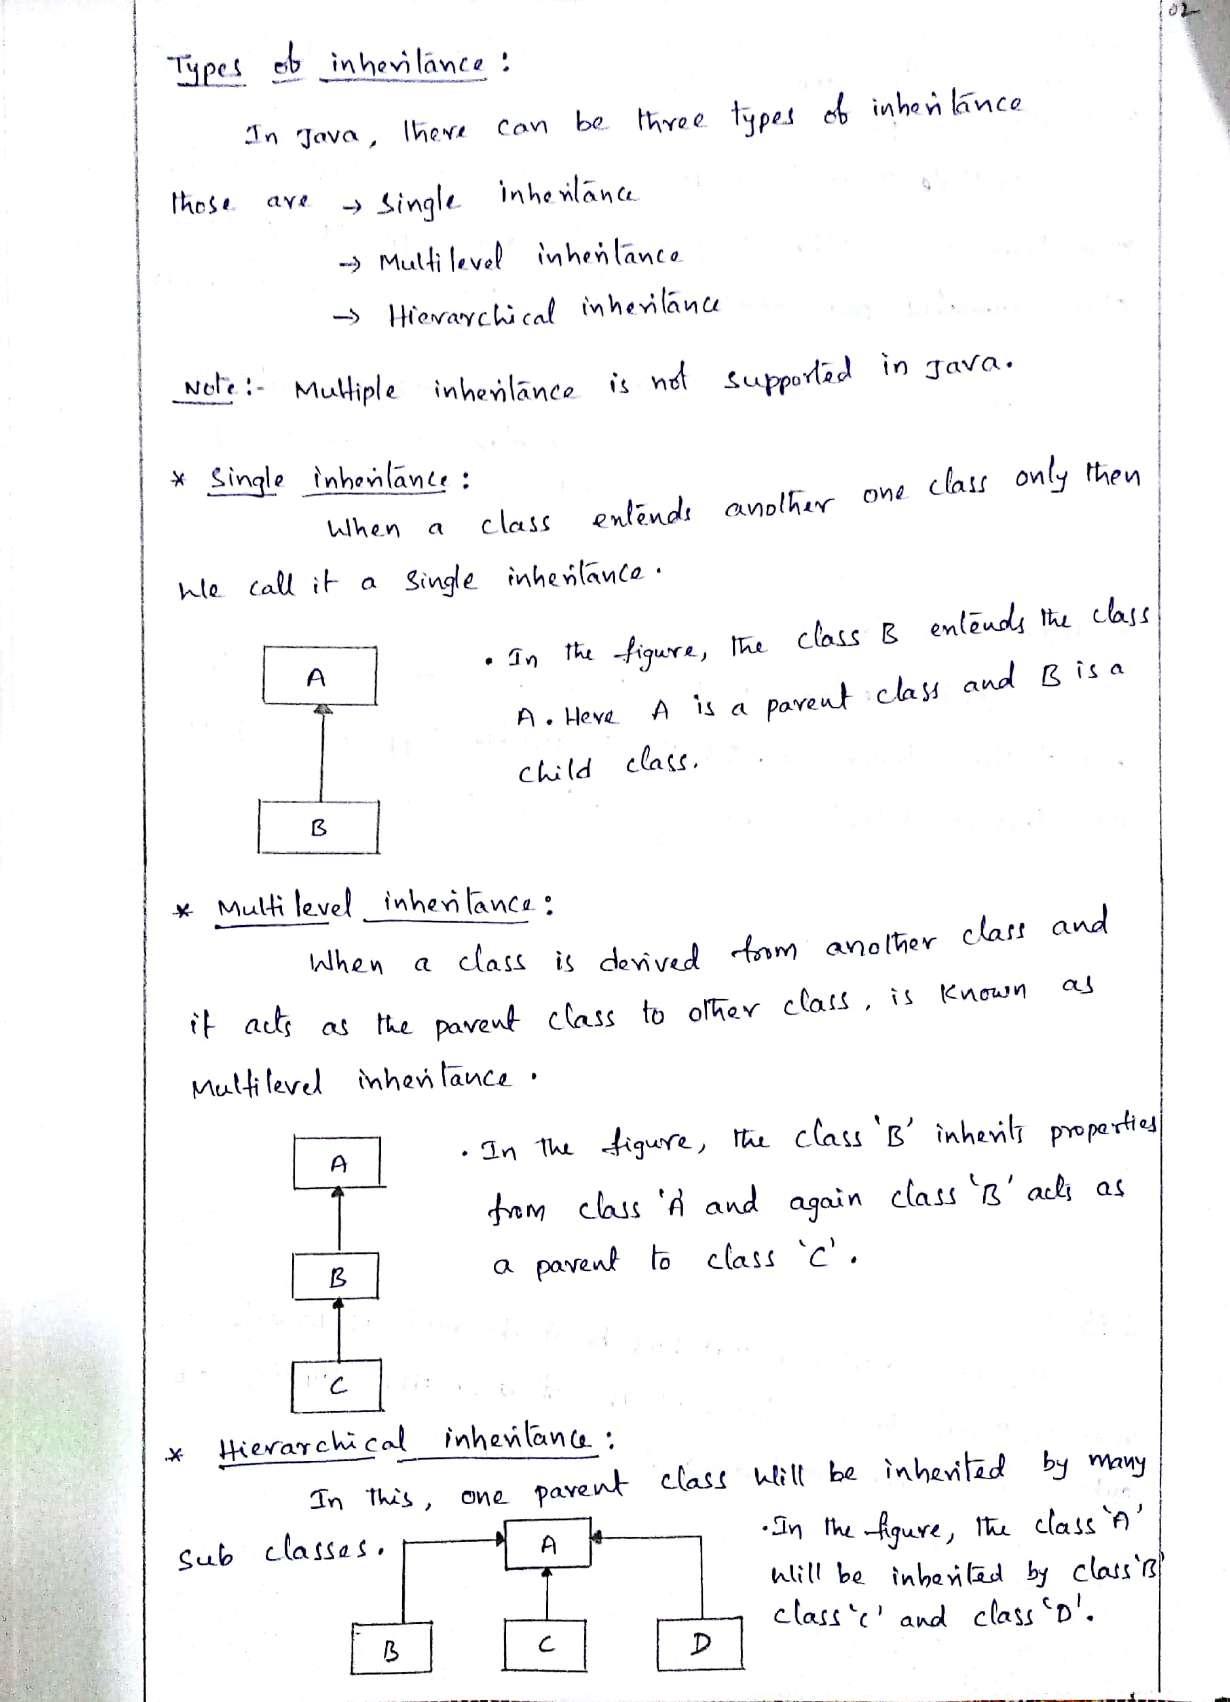 02
Types of inheritance :
In Java, there can be three types of inheritance
those are → Single inheritance
→ Multilevel inheritance
→ Hierarchical inheritance
Note :- Multiple inheritance is not supported in Java.
* Single inheritance :
When a class extends another one class only then
we call it a single inheritance.
• In the figure, the class B extends the class
A. Here A is a parent class and B is a
child class.
A
B
* Multilevel inheritance :
When a class is derived from another class and
it acts as the parent class to other class, is known as
Multilevel inheritance.
• In the figure, the class 'B' inherits properties
from class 'A' and again class 'B' acts as
a parent to class 'C'.
A
B
C
* Hierarchical inheritance :
In this, one parent class will be inherited by many
sub classes.
• In the figure, the class 'A'
will be inherited by class 'B'
class 'C' and class 'D'.
A
B C D